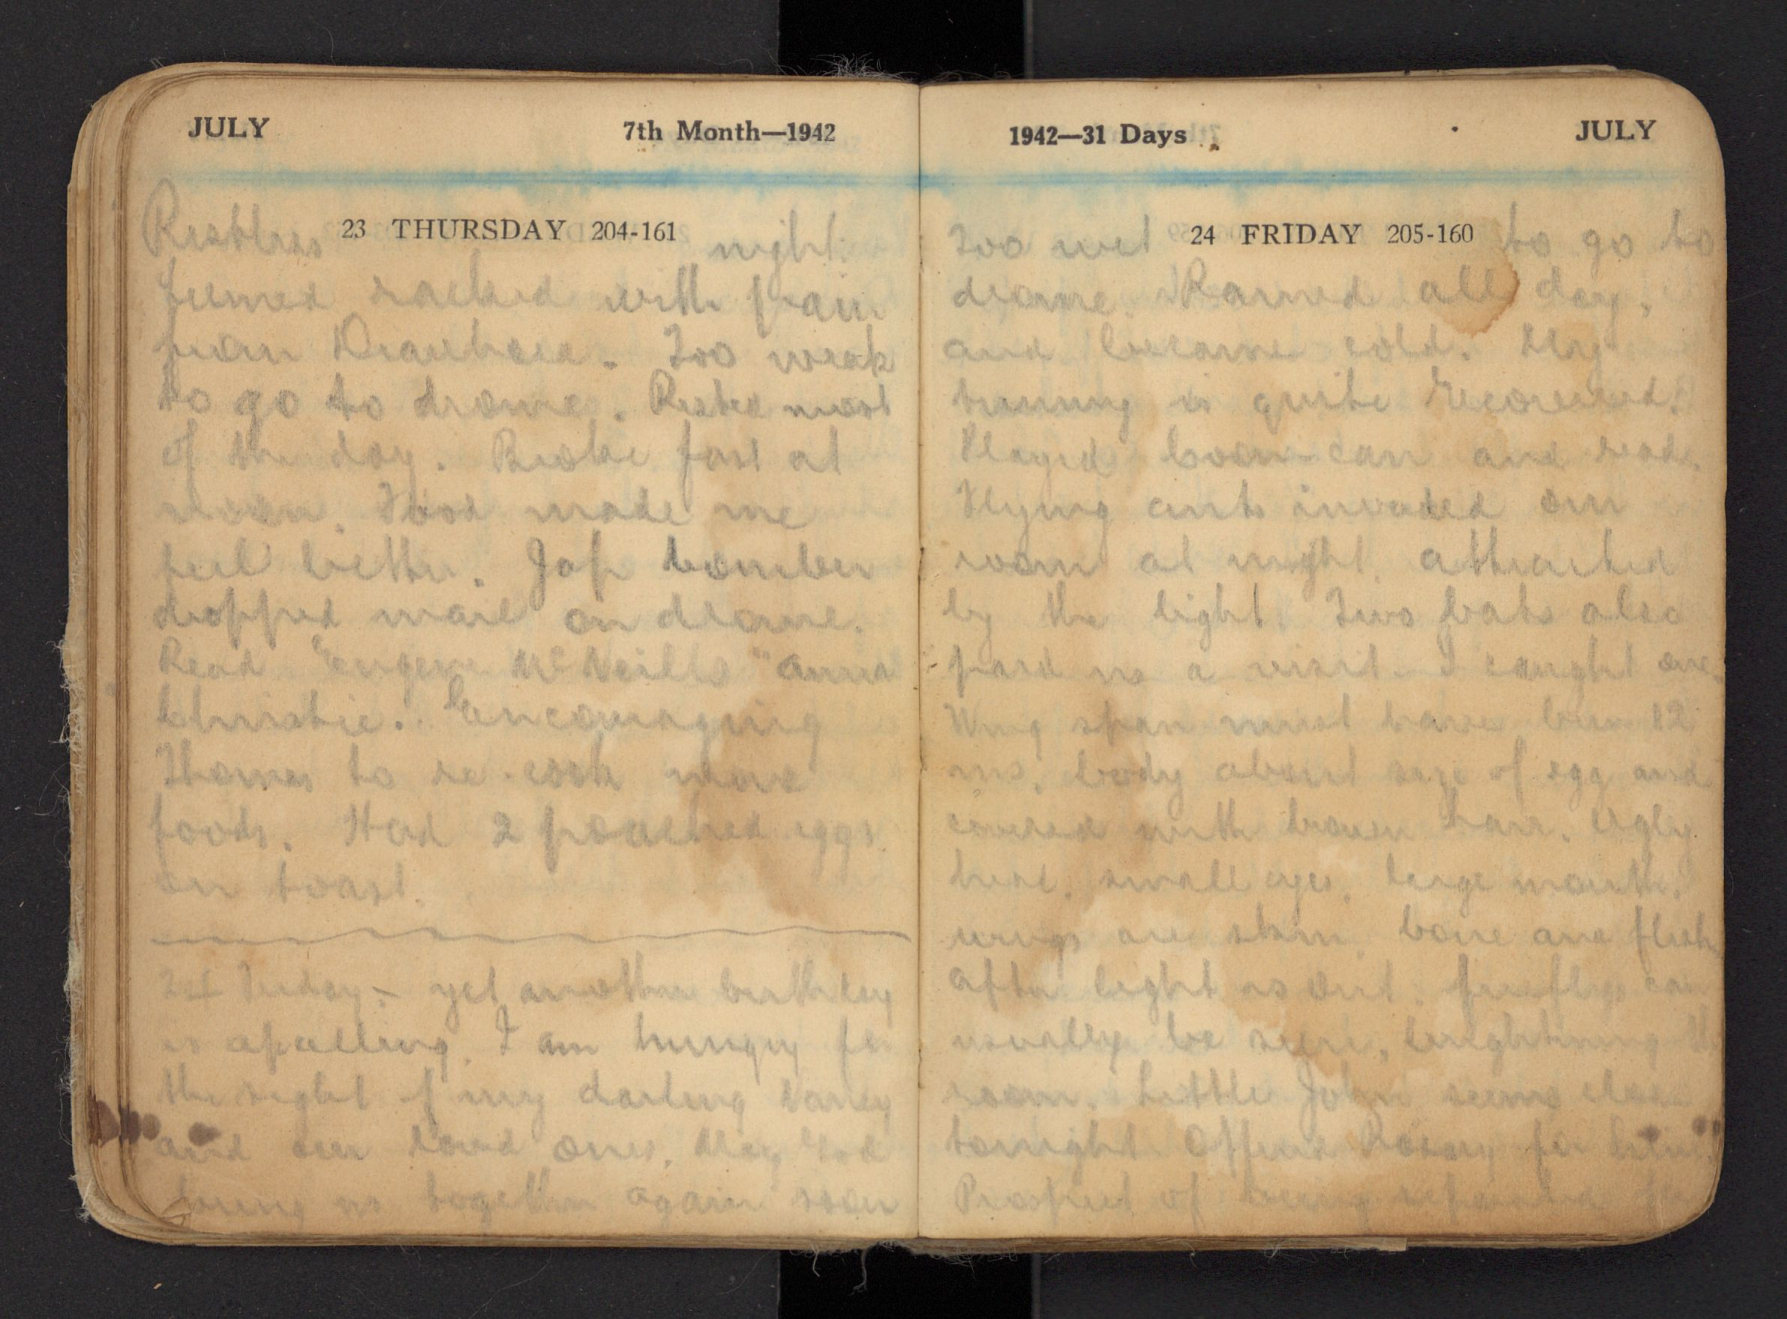 JULY 7th Month—1942
23 THURSDAY 204-161
Restless night
racked with pain
from Diarrhoea. Too weak
to go to drome. Rested most
of the day. Broke fast at
noon. Food made me
feel better. Jap bomber
dropped mail on drome.
Read "Eugene McNeills" "Anna
Christie". Encouraging
Thomas to re-cook more
foods. Had 2 poached eggs
on toast.
Friday - yet another birthday
is apalling. I am hungry for
the sight of my darling Nancy
and our loved ones. May God
bring us together again soon
1942—31 Days JULY
24 FRIDAY 205-160
Too wet to go to
drome. Rained all day,
and became cold. My
tummy is quite recovered.
Played Coon-can and read.
Flying ants invaded our
room at night, attracted
by the light. Two bats also
paid us a visit. I caught one.
Wing span must have been 12
ins, body about size of egg and
covered with brown hair. Ugly
head, small eyes, large mouth,
wings are skin, bone and flesh
After light is out, fireflys can
usually be seen, brightening the
room. Little John seems close
tonight. Offered Rosary for
Prospect of being separated for